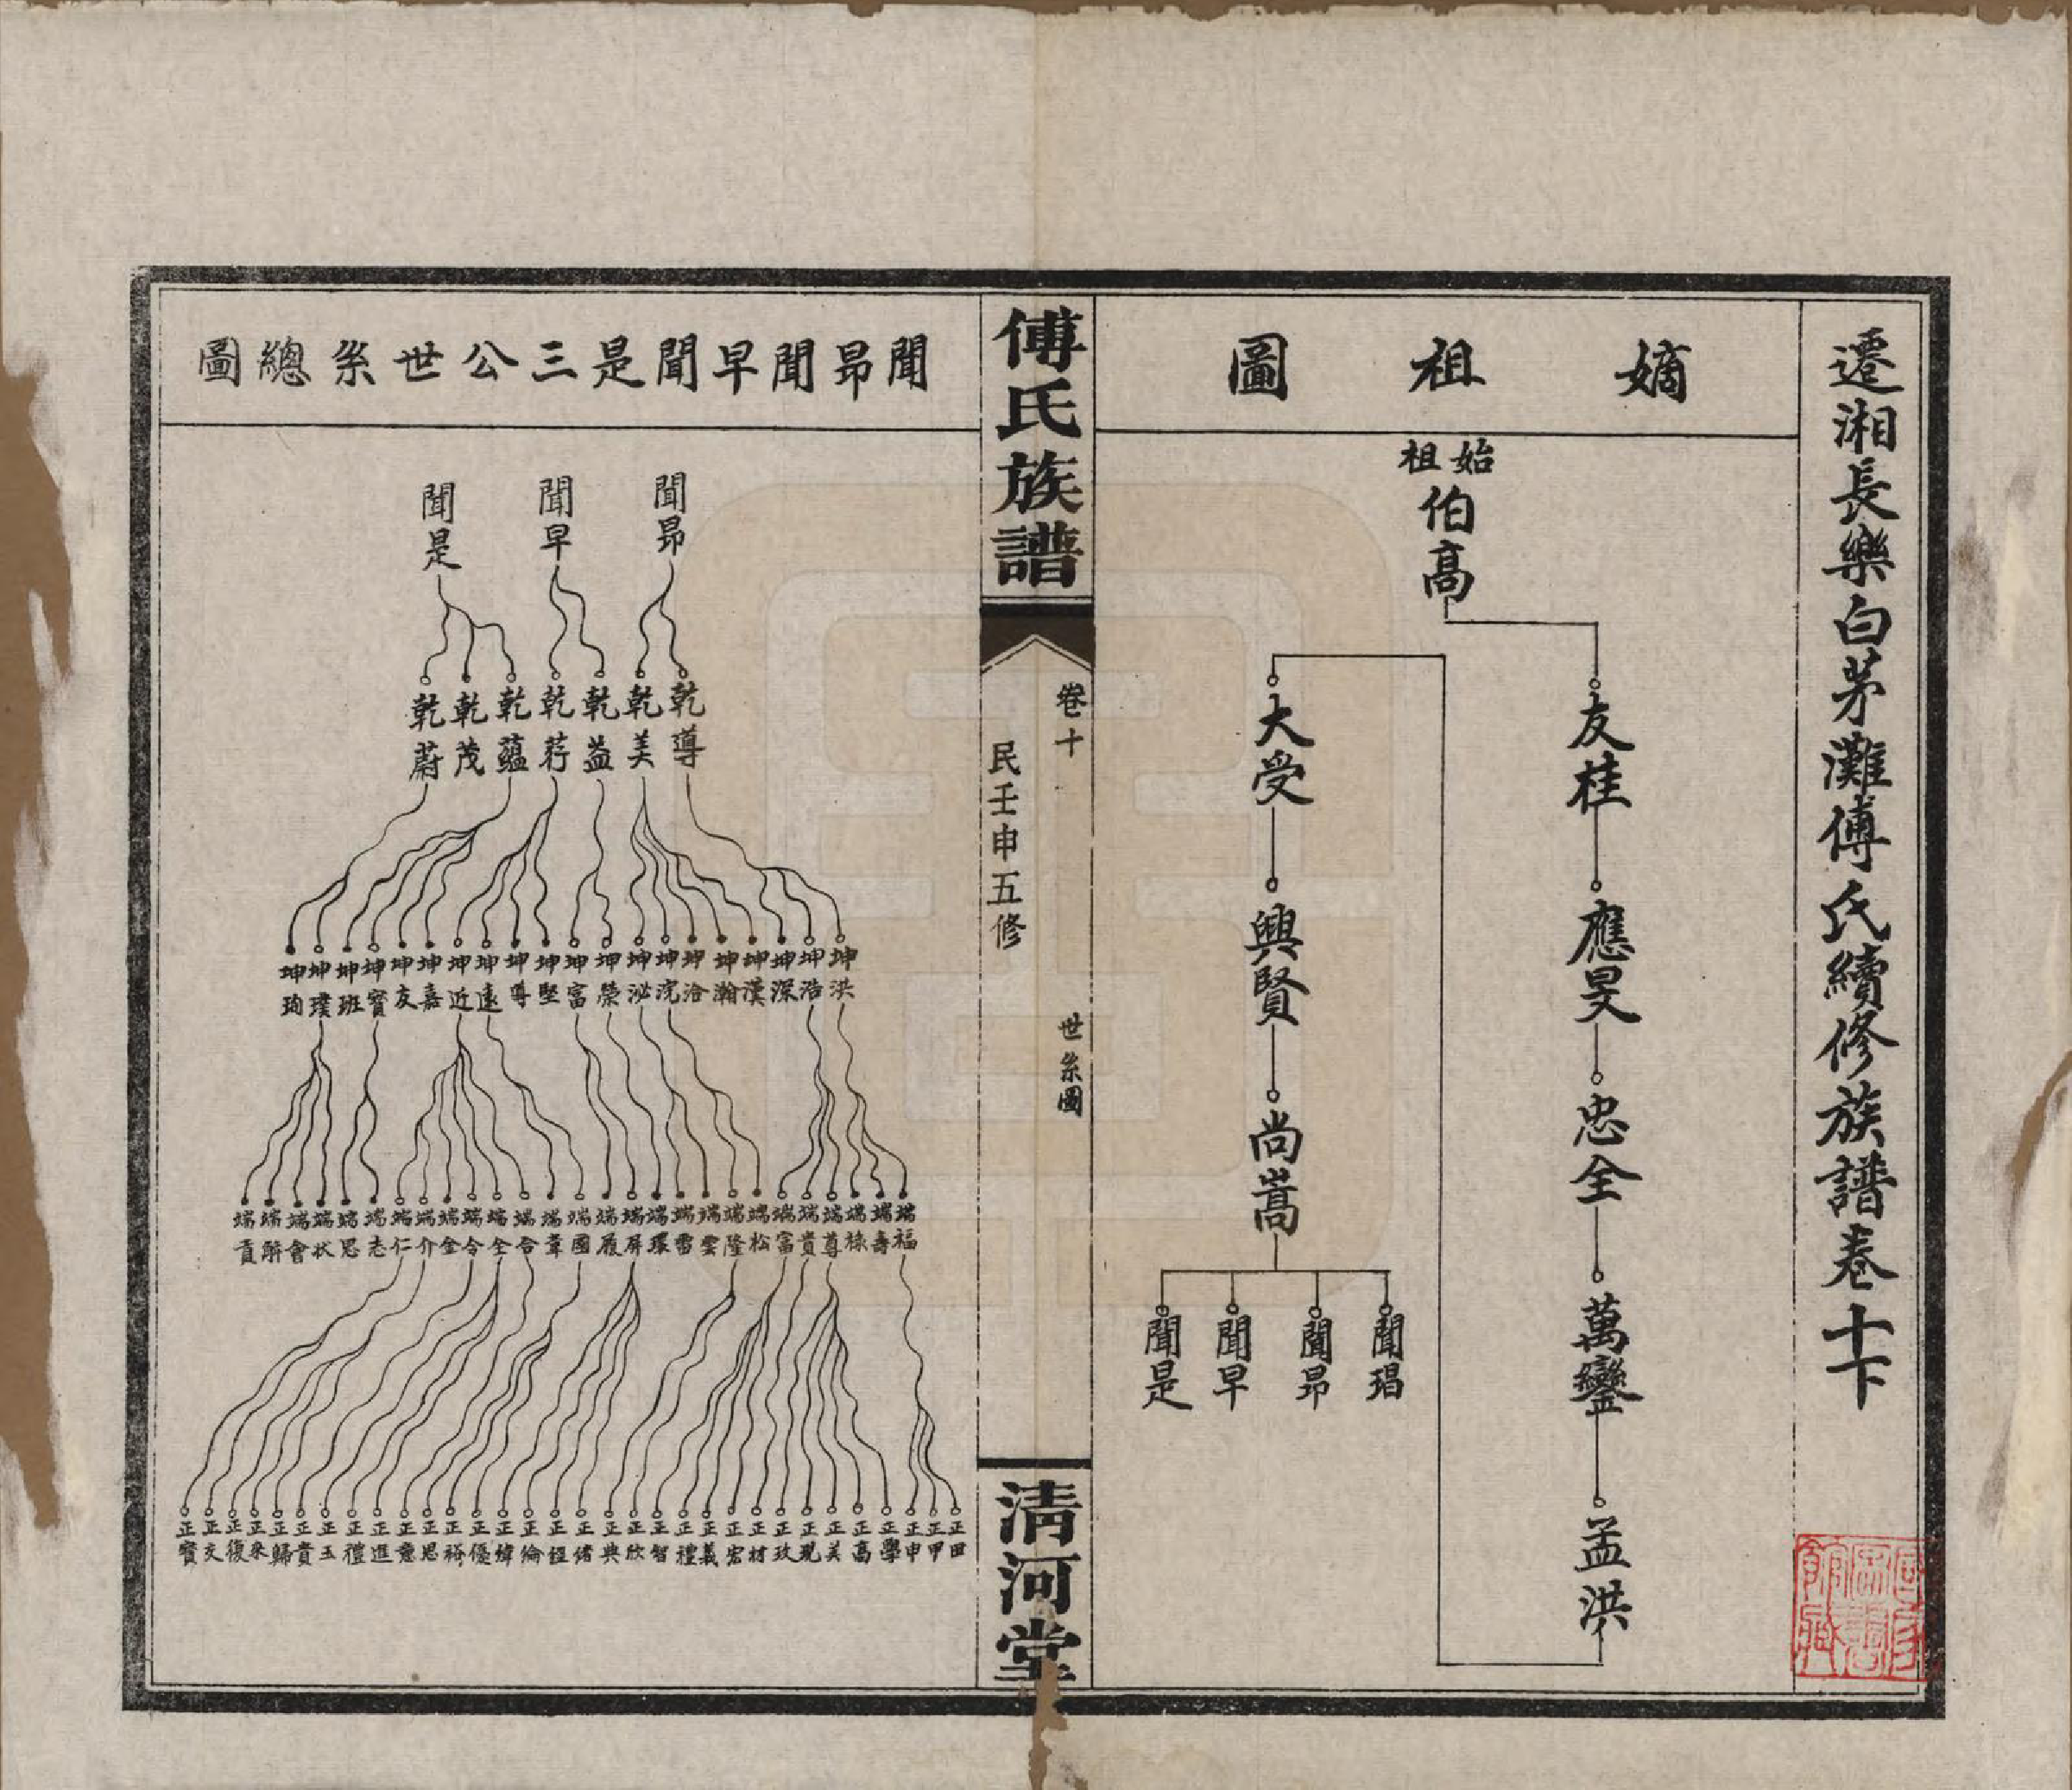 遷湘長樂白茅灘傅氏續修族譜卷十下
嫡祖圖
始祖
伯高
友桂
應旻
忠全
萬鑾
孟洪
大受
興賢
尚嵩
聞琩
聞昂
聞早
聞是
傅氏族譜
卷十
世系圖
民壬申五修
清河堂
聞昂聞早聞是三公世系總圖
聞昂
聞早
聞是
乾導
乾美
乾益
乾荐
乾蘊
乾茂
乾蔚
坤洪
坤浩
坤深
坤漢
坤瀚
坤洽
坤浣
坤泌
坤榮
坤富
坤堅
坤尊
坤遠
坤近
坤嘉
坤友
坤寶
坤班
坤璞
坤珣
端福
端壽
端祿
端尊
端貴
端富
端松
端隆
端雲
端雷
端環
端屏
端履
端國
端韋
端合
端全
端令
端金
端介
端仁
端志
端思
端狀
端會
端解
端貢
正田
正甲
正申
正學
正高
正美
正現
正政
正材
正宏
正義
正禮
正智
正欣
正典
正緒
正經
正倫
正煒
正優
正裕
正恩
正意
正進
正禮
正玉
正貴
正歸
正來
正復
正文
正寶